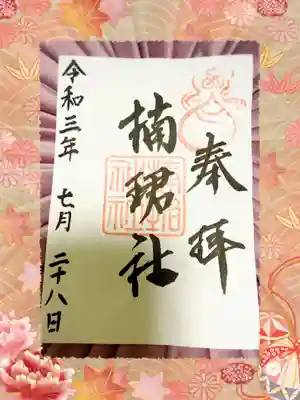 奉拝
楠珺社
令和三年 七月 二十八日